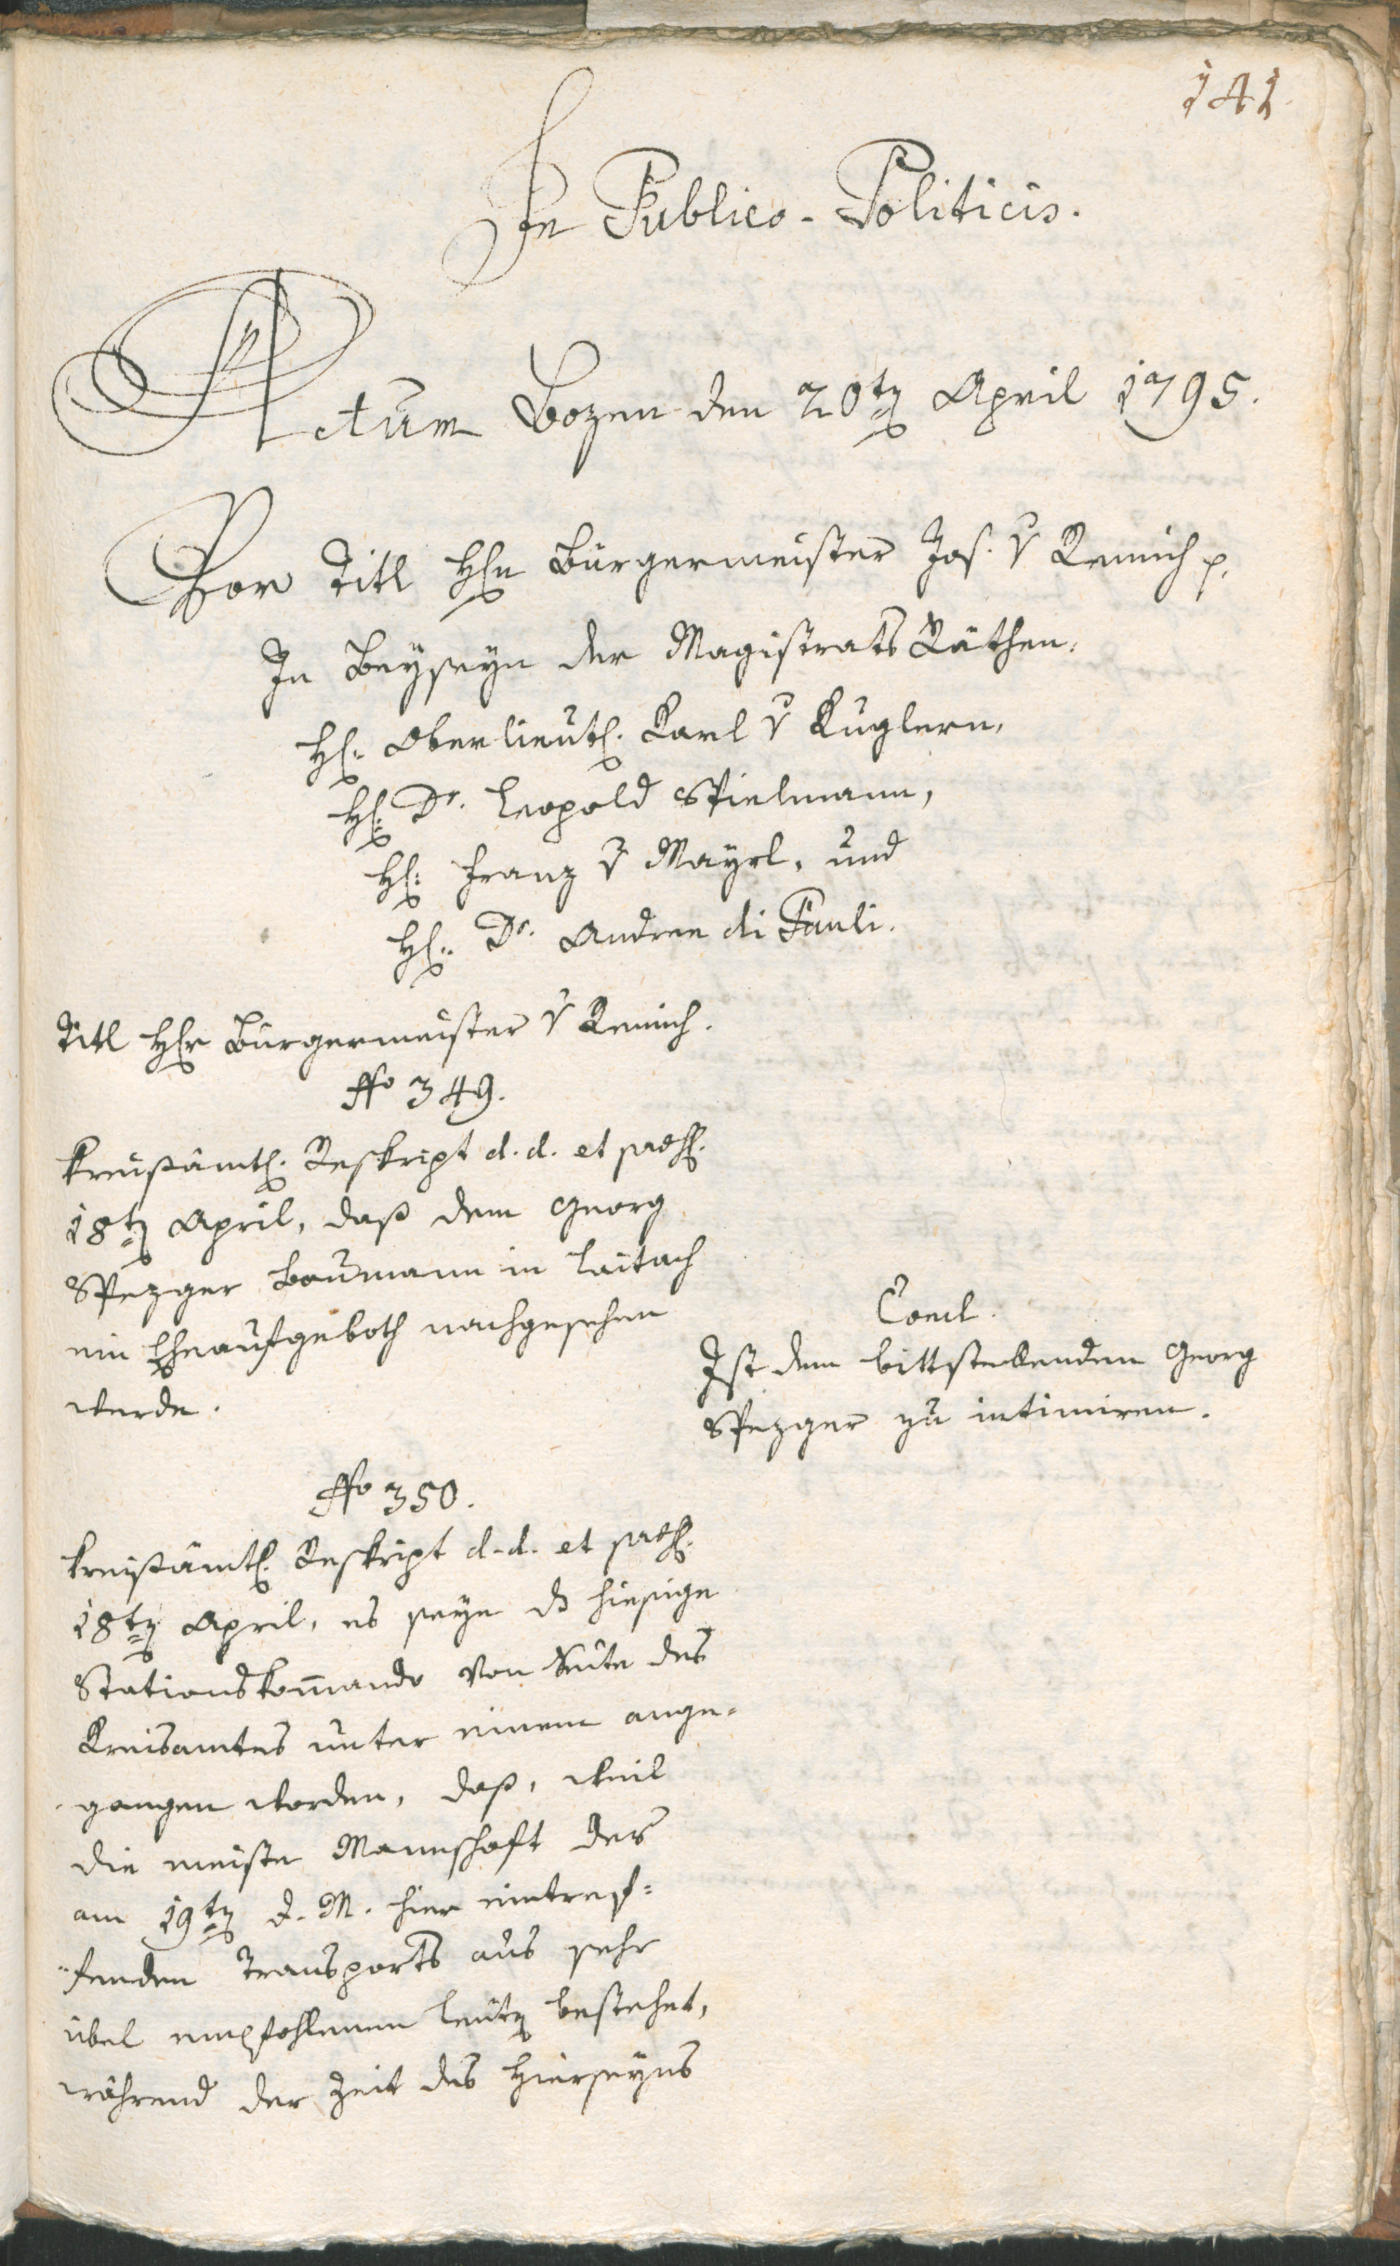 141.
In Publico-Politicis.
Actum Bozen den 20ten April 1795.
Vor Titl Hhn Bürgermeister Jos. v Remich p.
In Beyseyn der Magistrats Räthen.
H: Oberlieut. Karl v Kuglern,
H: Dr. Leopold Spielmann,
H: Franz v Mayrl, und
H: Dr. Andree di Pauli.
Titl Hhr Bürgermeister v Remich.
No 349.
Kreisämtl. Reskript d. d. et
18ten April, daß dem Georg
Spezger Baumann in Laitach
ein Eheaufgeboth nachgesehen
werde.
Concl.
Ist dem bittstellenden Georg
Spezger zu intimiren.
No 350.
Kreisämtl. Reskript d. d. et
18ten April, es seye ds hiesige
Stationskomando von Seite des
Kreisamtes unter einem ange-
gangen worden, daß, weil
die meiste Manschaft des
am 19ten d. M. hier eintref=
fenden Transports aus sehr
übel empfohlenen Leuten bestehet,
während der Zeit des Hierseyns